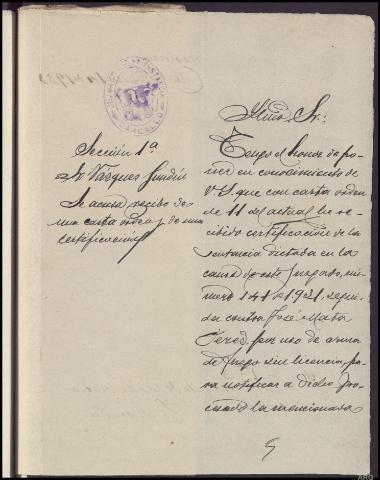 Sección 1ª
Sr. Vázquez Gundín
Se acusa recibo de
una carta orden y de una
certificación
Ilmo Sr:
Tengo el honor de po-
ner en conocimiento de
V.S. que con carta orden
de 11 del actual he re-
cibido certificación de la
sentencia dictada en la
causa de este Juzgado, nú-
mero 141 de 1921, segui-
da contra José Mata
por uso de arma
de fuego sin licencia, pa-
ra notificar a dicho pro-
cesado la mencionada